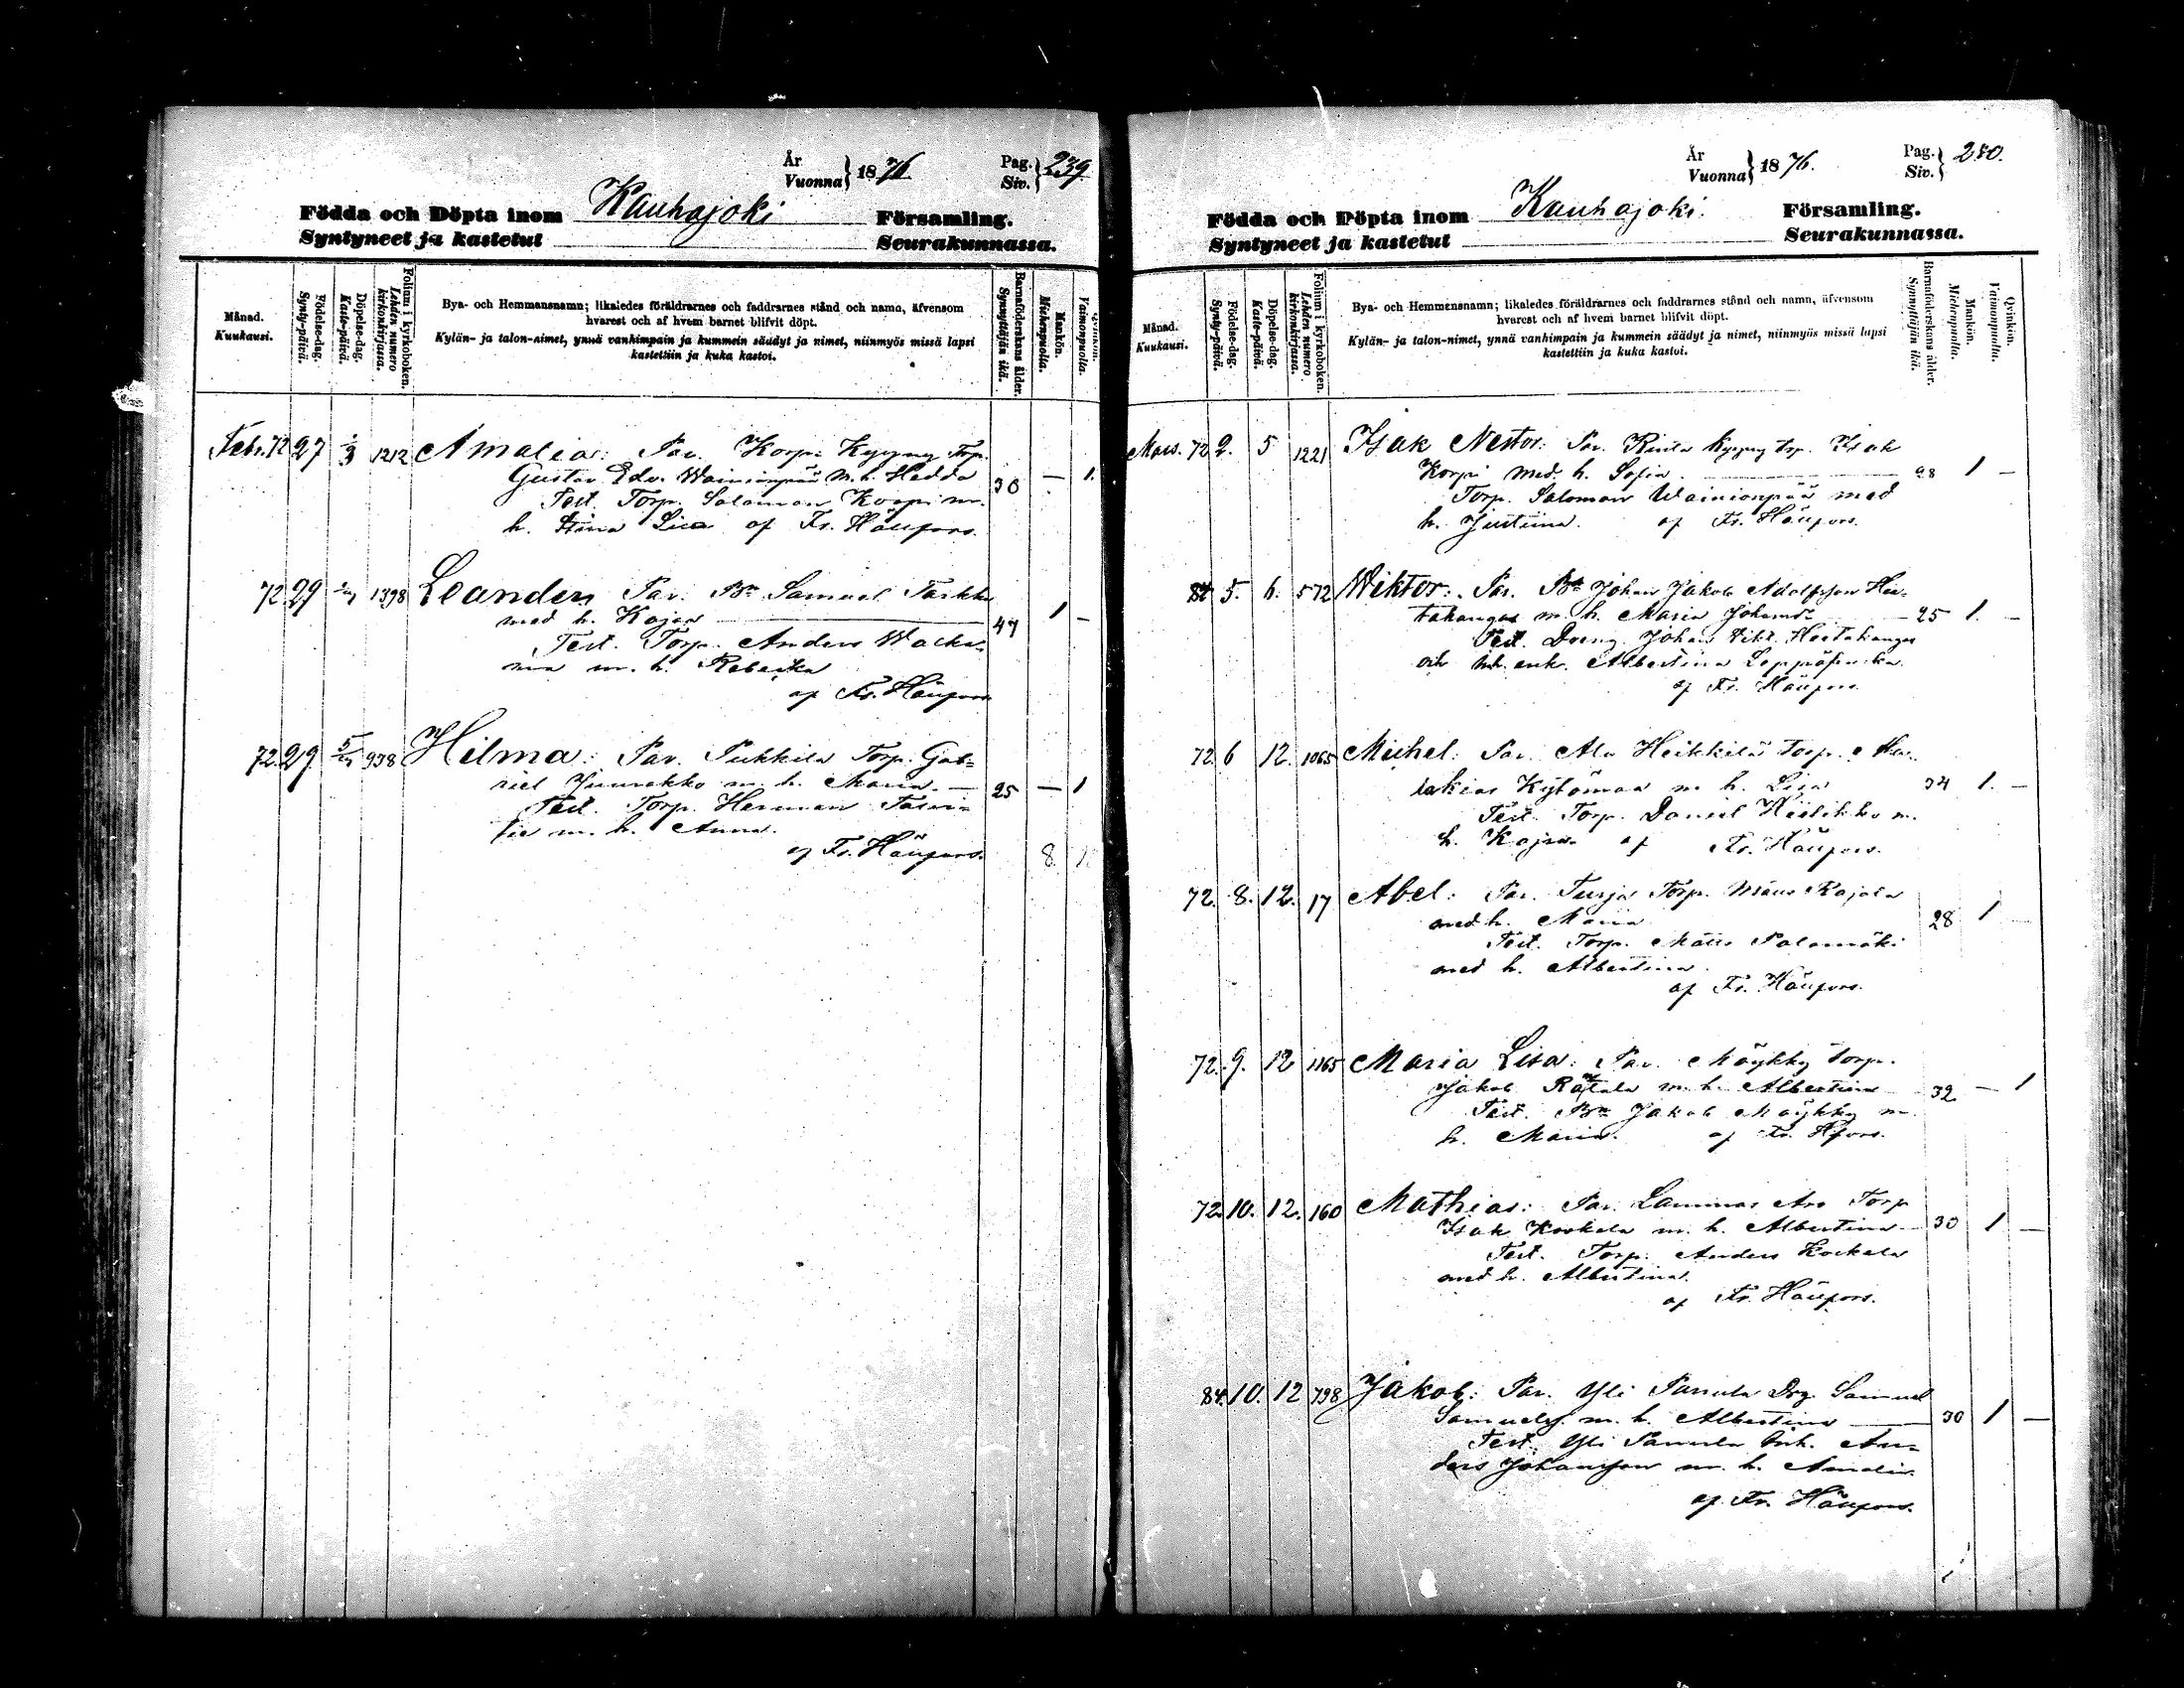 År
Vuonna } 1876.
Pag.
Siv. } 239.
Födda och Döpta inom Kauhajoki Församling.
Syntyneet ja kastetut Seurakunnassa.
Månad.
Kuukausi.
Födelse-dag.
Synty-päivä.
Döpelse-dag.
Kaste-päivä.
Folium i kyrkoboken.
Lehden numero
kirkonkirjassa.
Bya- och Hemmansnamn; likaledes föräldrarnes och faddrarnes stånd och namn, äfvensom
hvarest och af hvem barnet blifvit döpt.
Kylän- ja talon-nimet, ynnä vanhimpain ja kummein säädyt ja nimet, niinmyös missä lapsi
kastettiin ja kuka kastoi.
Barnaföderskans ålder.
Synnyttäjän ikä.
Mankön.
Miehenpuolia.
Qvinkön.
Vaimonpuolia.
Febr. 72 27 1/3 1212 Amalia: Par. Korpi Kyyny Torp.
Gustav Edv. Wainionpää m. h. Hedda 30 — 1.
Test. Torp. Salomon Korpi m.
h. Stina Lisa af Fr. Häufors.
72. 29 1398 Leander, Par. Bn Samuel
med h. Kajsa — 47 1 —
Test. Torp. Anders
m. h. Rebecka
af Fr. Häufors
72. 29. 938 Hilma: Par. Pukkila Torp. Gab-
riel m. h. Maria. — 25 — 1
Test. Torp. Herman
m. h. Anna.
af Fr. Häufors. 8
År
Vuonna } 1876.
Pag.
Siv. } 240.
Födda och Döpta inom Kauhajoki. Församling.
Syntyneet ja kastetut Seurakunnassa.
Månad.
Kuukausi.
Födelse-dag.
Synty-päivä.
Döpelse-dag.
Kaste-päivä.
Folium i kyrkoboken.
Lehden numero
kirkonkirjassa.
Bya- och Hemmensnamn; likaledes föräldrarnes och faddrarnes stånd och namn, äfvensom
hvarest och af hvem barnet blifvit döpt.
Kylän- ja talon-nimet, ynnä vanhimpain ja kummein säädyt ja nimet, niinmyös missä lapsi
kastettiin ja kuka kastoi.
Barnaföderskans ålder.
Synnyttäjän ikä.
Mankön.
Miehenpuolia.
Qvinkön.
Vaimonpuolia.
Mars. 72 2. 5 1221 Isak Nestor: Par. Rinta Kyyny Trp. Isak
Korpi med h. Sofia — 28 1 —
Torp. Salomon Wainionpää med
h. Justiina. af Fr. Häufors.
5. 6. 572 Wiktor: Par. Bn Johan Jakob Adolfsson Hie-
takangas m. h. Maria Johansdr — 25 1. —
Test. Dreng Johan Vikt. Hietakangas
och enk. Albertina
af Fr. Häufors.
72. 6 12. 1065 Michel: Par. Ala Heikkilä Torp. Ma-
lakias Kytömaa m. h. Lisa 34 1. —
Test. Torp. Daniel m.
h. Kajsa af Fr. Häufors.
72. 8. 12. 17 Abel: Par. Turja Torp. Måns Rajala
med h. Maria 28 1
Test. Torp. Matts Palomäki
med h. Albertina.
af Fr. Häufors.
72. 9. 12 1165 Maria Lisa: Par. Mäykky Torp.
Jakob m. h. Albertina — 32. — 1
Test. Bn Jakob Mäykky m.
h. Maria. af Fr. Hfors.
72. 10. 12. 160 Mathias: Par. Lammas Aro Torp
Isak Koskela m. h. Albertina — 30 1 —
Test. Torp. Anders Koskela
med h. Albertina.
af Fr. Häufors.
84. 10. 12 798 Jakob: Par. Yli Panula Drg Samuel
Samuelss. m. h. Albertina — 30 1 —
Test. Yli Panula Inh. An-
ders Johansson m. h. Amalia
af Fr. Häufors.